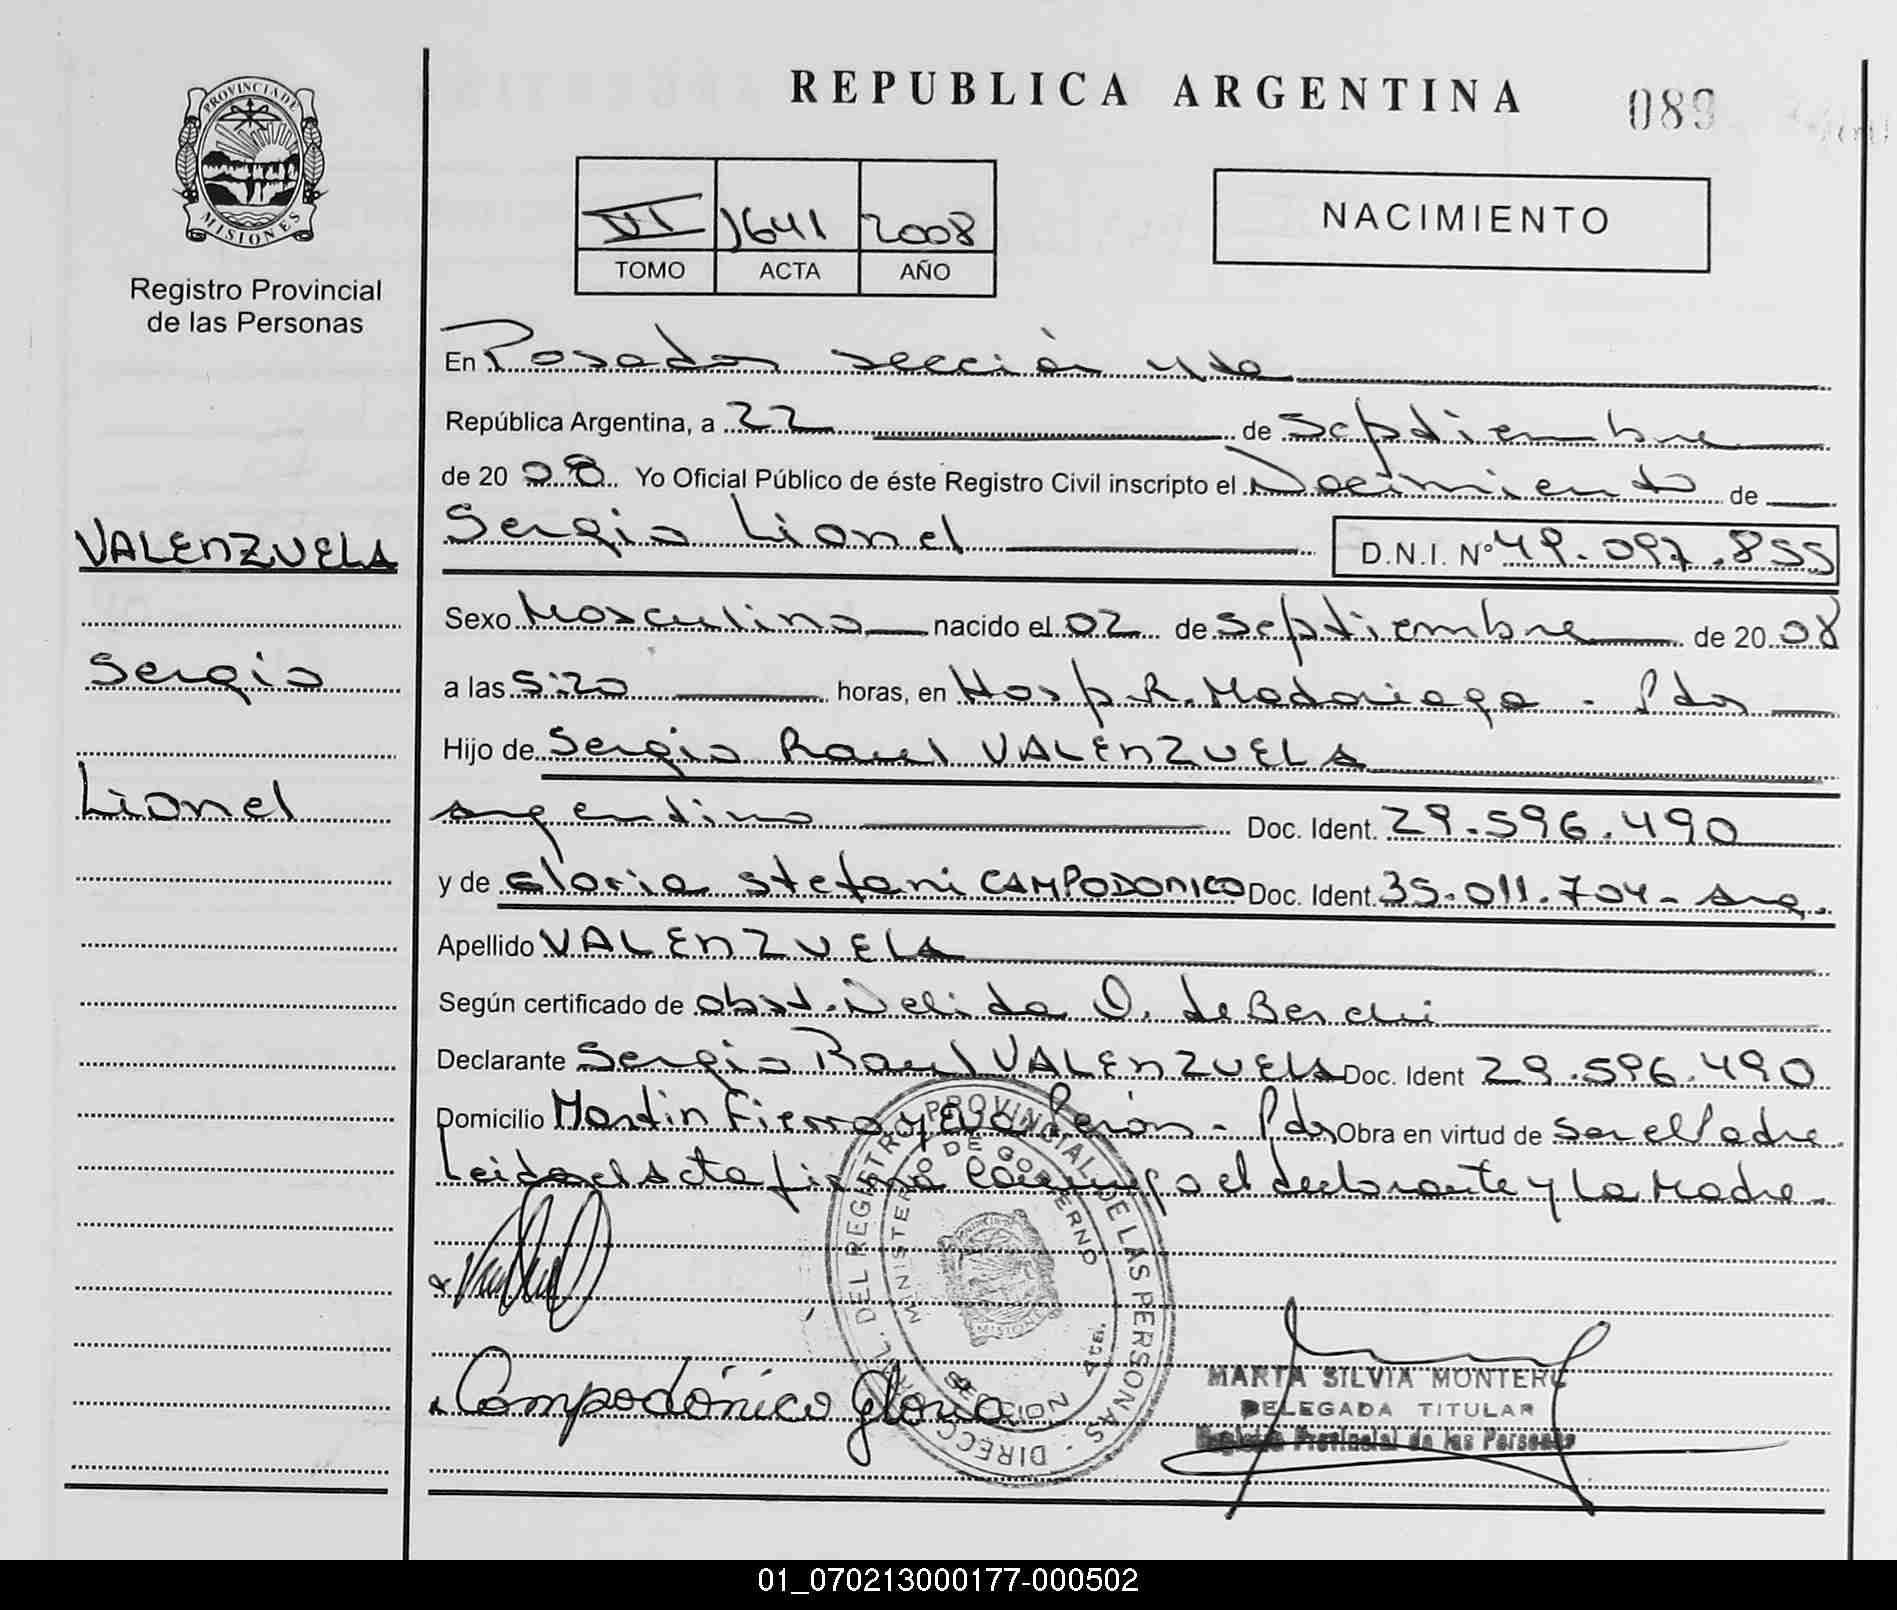 REPUBLICA ARGENTINA
089
PROVINCIA DE
MISIONES
Registro Provincial
de las Personas
VI 1641 2008
TOMO ACTA AÑO
NACIMIENTO
En Posadas sección 4ta
República Argentina, a 22 de septiembre
de 20 08 Yo Oficial Público de éste Registro Civil inscripto el Nacimiento de
Sergio Lionel D.N.I. Nº 49.097.855
VALENZUELA
Sergio
Lionel
Sexo Masculino nacido el 02 de septiembre de 20 08
a las 5:20 horas, en Hosp. R. Madariaga - Pdas
Hijo de Sergio Raul VALENZUELA
argentino Doc. Ident. 29.596.490
y de Gloria Stefani CAMPODONICO Doc. Ident. 35.011.704 - Arg.
Apellido VALENZUELA
Según certificado de obst. Nelida O. de
Declarante Sergio Raul VALENZUELA Doc. Ident 29.596.490
Domicilio Martin Fierro y Eva Perón - Pdas Obra en virtud de ser el Padre
Leida el Acta firma conmigo el declarante y la Madre.
DIRECC. GRAL. DEL REGISTRO PROVINCIAL DE LAS PERSONAS
MINISTERIO DE GOBIERNO
MISIONES
SECCION 4ta.
Campodónico Gloria
MARTA SILVIA MONTERO
DELEGADA TITULAR
Registro Provincial de las Personas
01_070213000177-000502